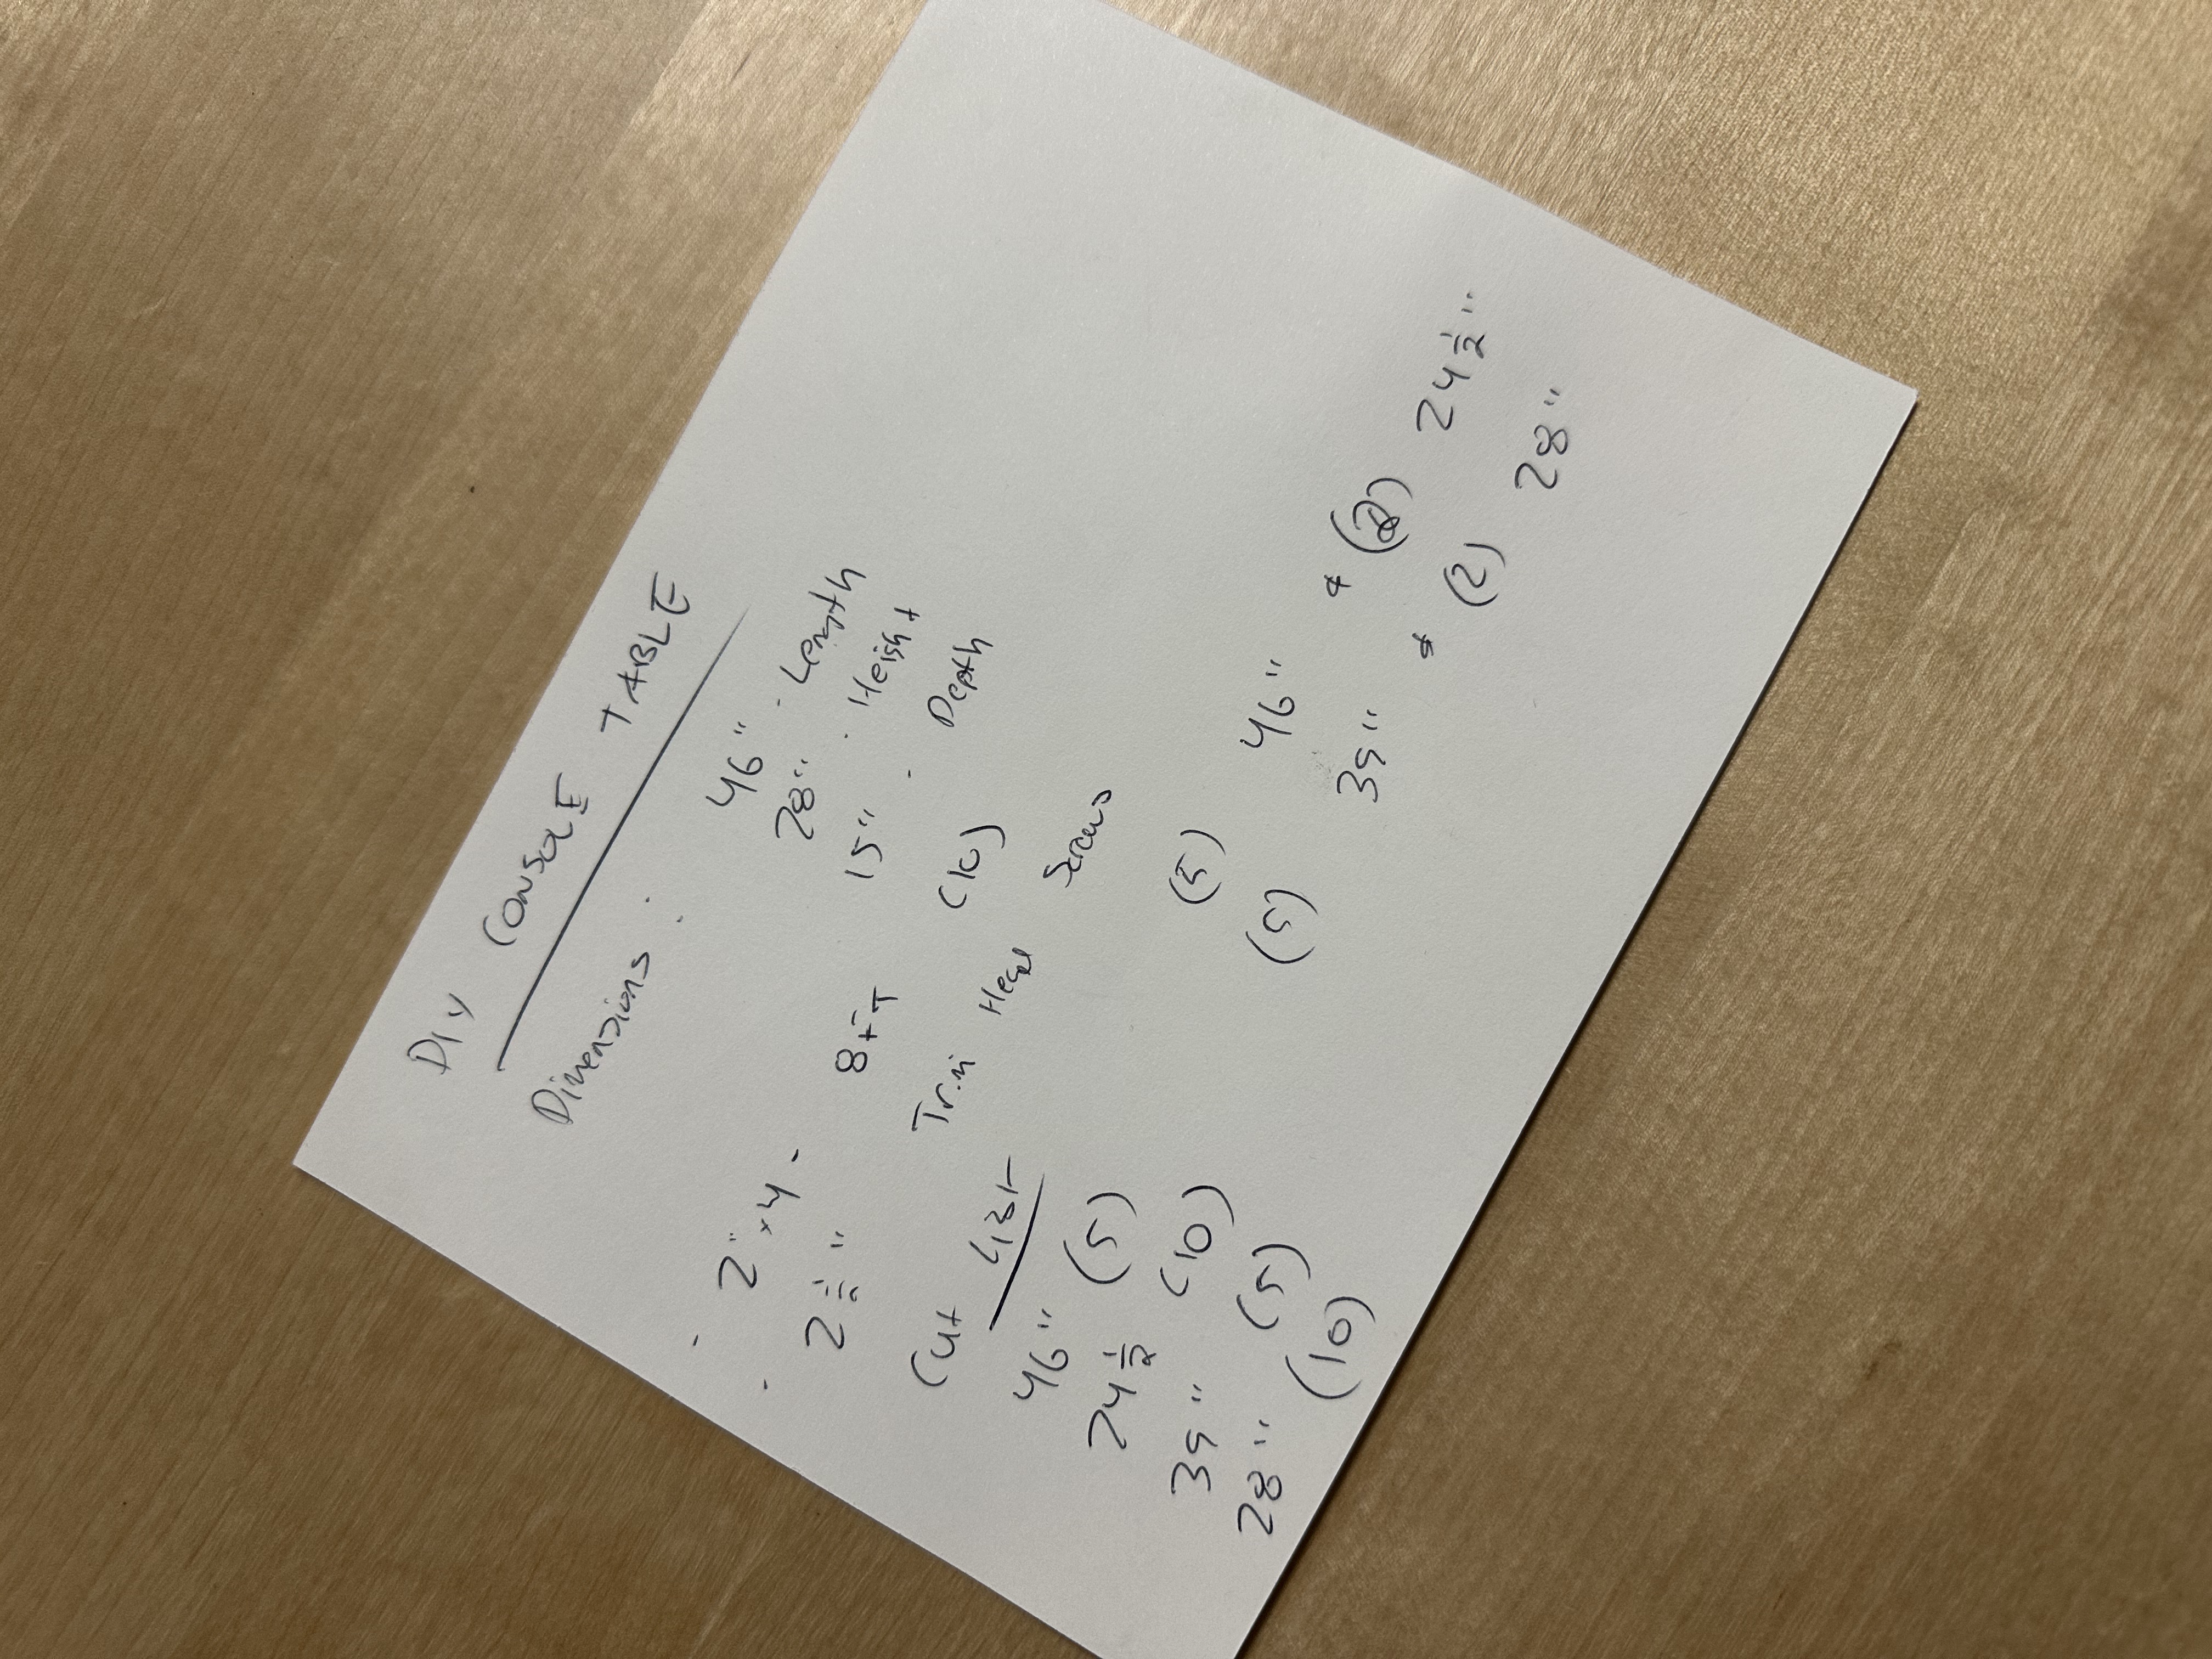 DIY CONSOLE TABLE
Dimensions: 46" - Length
28" - Height
15" - Depth
- 2"x4 - 8FT (10)
- 2 1/2" Trim Head Screws
Cut List
46" (5)
24 1/2 (10)
39" (5)
28" (10)
(5) 46" & (2) 24 1/2"
(5) 39" & (2) 28"